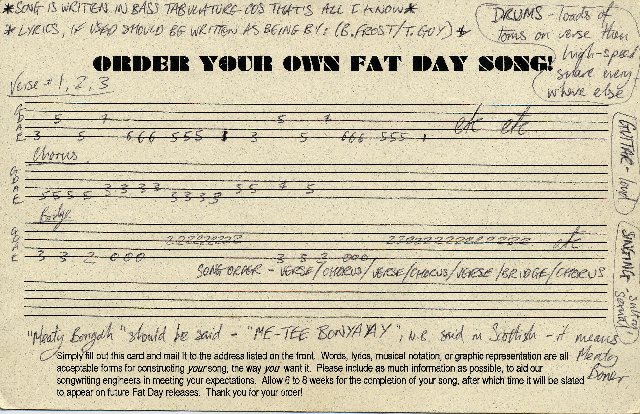 *SONG IS WRITTEN IN BASS TABULATURE - COS THAT'S ALL I KNOW*
*LYRICS, IF USED SHOULD BE WRITTEN AS BEING BY: (B. FROST/T. GUY)*
DRUMS - loads of
toms on verse then
high-speed
snare every
where else
ORDER YOUR OWN FAT DAY SONG!
Verse # 1, 2, 3
G
D 5 7 5 7
A
E 3 5 666 555 3 5 666 555 etc etc
Chorus
G
D
A 3333 55 7 5
E 5555 3333
Bridge
G
D 22222222 2222222222222 etc
A
E 3 3 2 000 3 3 3 000
GUITAR - loud
SINGING -
SONG ORDER - VERSE/CHORUS/VERSE/CHORUS/VERSE/BRIDGE/CHORUS
"Meaty Bongah" should be said - "ME-TEE BONYAAY", N.B. said in Scottish - it means
Meaty
Boner
Simply fill out this card and mail it to the address listed on the front. Words, lyrics, musical notation, or graphic representation are all
acceptable forms for constructing your song, the way you want it. Please include as much information as possible, to aid our
songwriting engineers in meeting your expectations. Allow 6 to 8 weeks for the completion of your song, after which time it will be slated
to appear on future Fat Day releases. Thank you for your order!